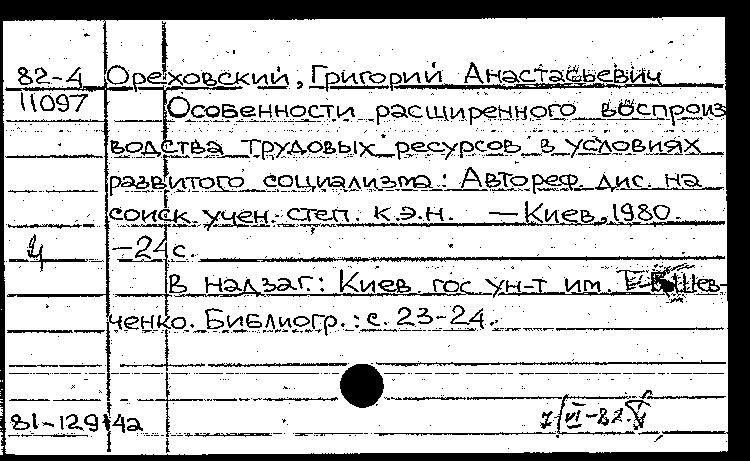 82-4 Ореховский, Григорий Анастасьевич
11097 Особенности расширенного воспроиз
водства трудовых ресурсов в условиях
развитого социализма: Автореф. дис. на
соиск. учен. степ. к.э.н. — Киев, 1980.
—24с.
В надзаг.: Киев гос ун-т им. Шев-
ченко. Библиогр.: с. 23-24.
81-12914а VI-82.